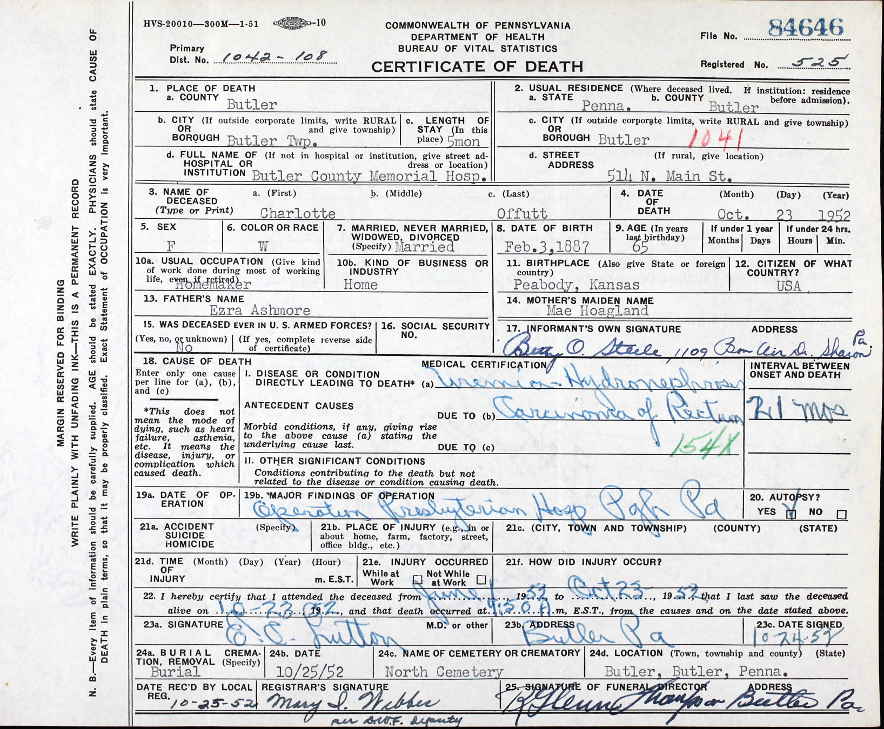 HVS-20010—300M—1-51 -10
COMMONWEALTH OF PENNSYLVANIA
DEPARTMENT OF HEALTH
BUREAU OF VITAL STATISTICS
CERTIFICATE OF DEATH
File No. 84646
Primary
Dist. No. 1042-108
Registered No. 525
MARGIN RESERVED FOR BINDING
WRITE PLAINLY WITH UNFADING INK—THIS IS A PERMANENT RECORD
N. B.—Every item of information should be carefully supplied. AGE should be stated EXACTLY. PHYSICIANS should state CAUSE OF
DEATH in plain terms, so that it may be properly classified. Exact Statement of OCCUPATION is very important.
1. PLACE OF DEATH
a. COUNTY Butler
2. USUAL RESIDENCE (Where deceased lived. If institution: residence
before admission).
a. STATE Penna. b. COUNTY Butler
b. CITY (If outside corporate limits, write RURAL
OR and give township)
BOROUGH Butler Twp.
c. LENGTH OF
STAY (In this
place) 5mon
c. CITY (If outside corporate limits, write RURAL and give township)
OR
BOROUGH Butler 1041
d. FULL NAME OF (If not in hospital or institution, give street ad-
HOSPITAL OR dress or location)
INSTITUTION Butler County Memorial Hosp.
d. STREET (If rural, give location)
ADDRESS
514 N. Main St.
3. NAME OF
DECEASED
(Type or Print)
a. (First) b. (Middle) c. (Last)
Charlotte Offutt
4. DATE
OF
DEATH
(Month) (Day) (Year)
Oct. 23 1952
5. SEX
F
6. COLOR OR RACE
W
7. MARRIED, NEVER MARRIED,
WIDOWED, DIVORCED
(Specify) Married
8. DATE OF BIRTH
Feb.3,1887
9. AGE (In years
last birthday)
65
If under 1 year
Months Days
If under 24 hrs.
Hours Min.
10a. USUAL OCCUPATION (Give kind
of work done during most of working
life, even if retired)
Homemaker
10b. KIND OF BUSINESS OR
INDUSTRY
Home
11. BIRTHPLACE (Also give State or foreign
country)
Peabody, Kansas
12. CITIZEN OF WHAT
COUNTRY?
USA
13. FATHER'S NAME
Ezra Ashmore
14. MOTHER'S MAIDEN NAME
Mae Hoagland
15. WAS DECEASED EVER IN U. S. ARMED FORCES?
(Yes, no, or unknown) (If yes, complete reverse side
of certificate)
No
16. SOCIAL SECURITY
NO.
17. INFORMANT'S OWN SIGNATURE ADDRESS
Betty O. Steele, 1109 Bon Air Dr. Sharon Pa
18. CAUSE OF DEATH
Enter only one cause
per line for (a), (b),
and (c)
*This does not
mean the mode of
dying, such as heart
failure, asthenia,
etc. It means the
disease, injury, or
complication which
caused death.
MEDICAL CERTIFICATION
I. DISEASE OR CONDITION
DIRECTLY LEADING TO DEATH* (a) Uremia - Hydronephrosis
ANTECEDENT CAUSES
DUE TO (b) Carcinoma of Rectum
Morbid conditions, if any, giving rise
to the above cause (a) stating the
underlying cause last.
DUE TO (c)
154X
INTERVAL BETWEEN
ONSET AND DEATH
21 mos
II. OTHER SIGNIFICANT CONDITIONS
Conditions contributing to the death but not
related to the disease or condition causing death.
19a. DATE OF OP-
ERATION
19b. MAJOR FINDINGS OF OPERATION
Operation Presbyterian Hosp Pgh Pa
20. AUTOPSY?
YES NO
21a. ACCIDENT (Specify)
SUICIDE
HOMICIDE
21b. PLACE OF INJURY (e.g., in or
about home, farm, factory, street,
office bldg., etc.)
21c. (CITY, TOWN AND TOWNSHIP) (COUNTY) (STATE)
21d. TIME (Month) (Day) (Year) (Hour)
OF
INJURY m. E.S.T.
21e. INJURY OCCURRED
While at Work Not While at Work
21f. HOW DID INJURY OCCUR?
22. I hereby certify that I attended the deceased from June 1, 1952 to Oct 23, 1952 that I last saw the deceased
alive on 10-23 1952, and that death occurred at m, E.S.T., from the causes and on the date stated above.
23a. SIGNATURE M.D. or other
E. C. Lutton
23b. ADDRESS
Butler Pa
23c. DATE SIGNED
10-24-52
24a. BURIAL CREMA-
TION, REMOVAL (Specify)
Burial
24b. DATE
10/25/52
24c. NAME OF CEMETERY OR CREMATORY
North Cemetery
24d. LOCATION (Town, township and county) (State)
Butler, Butler, Penna.
DATE REC'D BY LOCAL
REG.
10-25-52
REGISTRAR'S SIGNATURE
Mary I. Webber
per D.W.F. Deputy
25. SIGNATURE OF FUNERAL DIRECTOR ADDRESS
Thompson Butler Pa